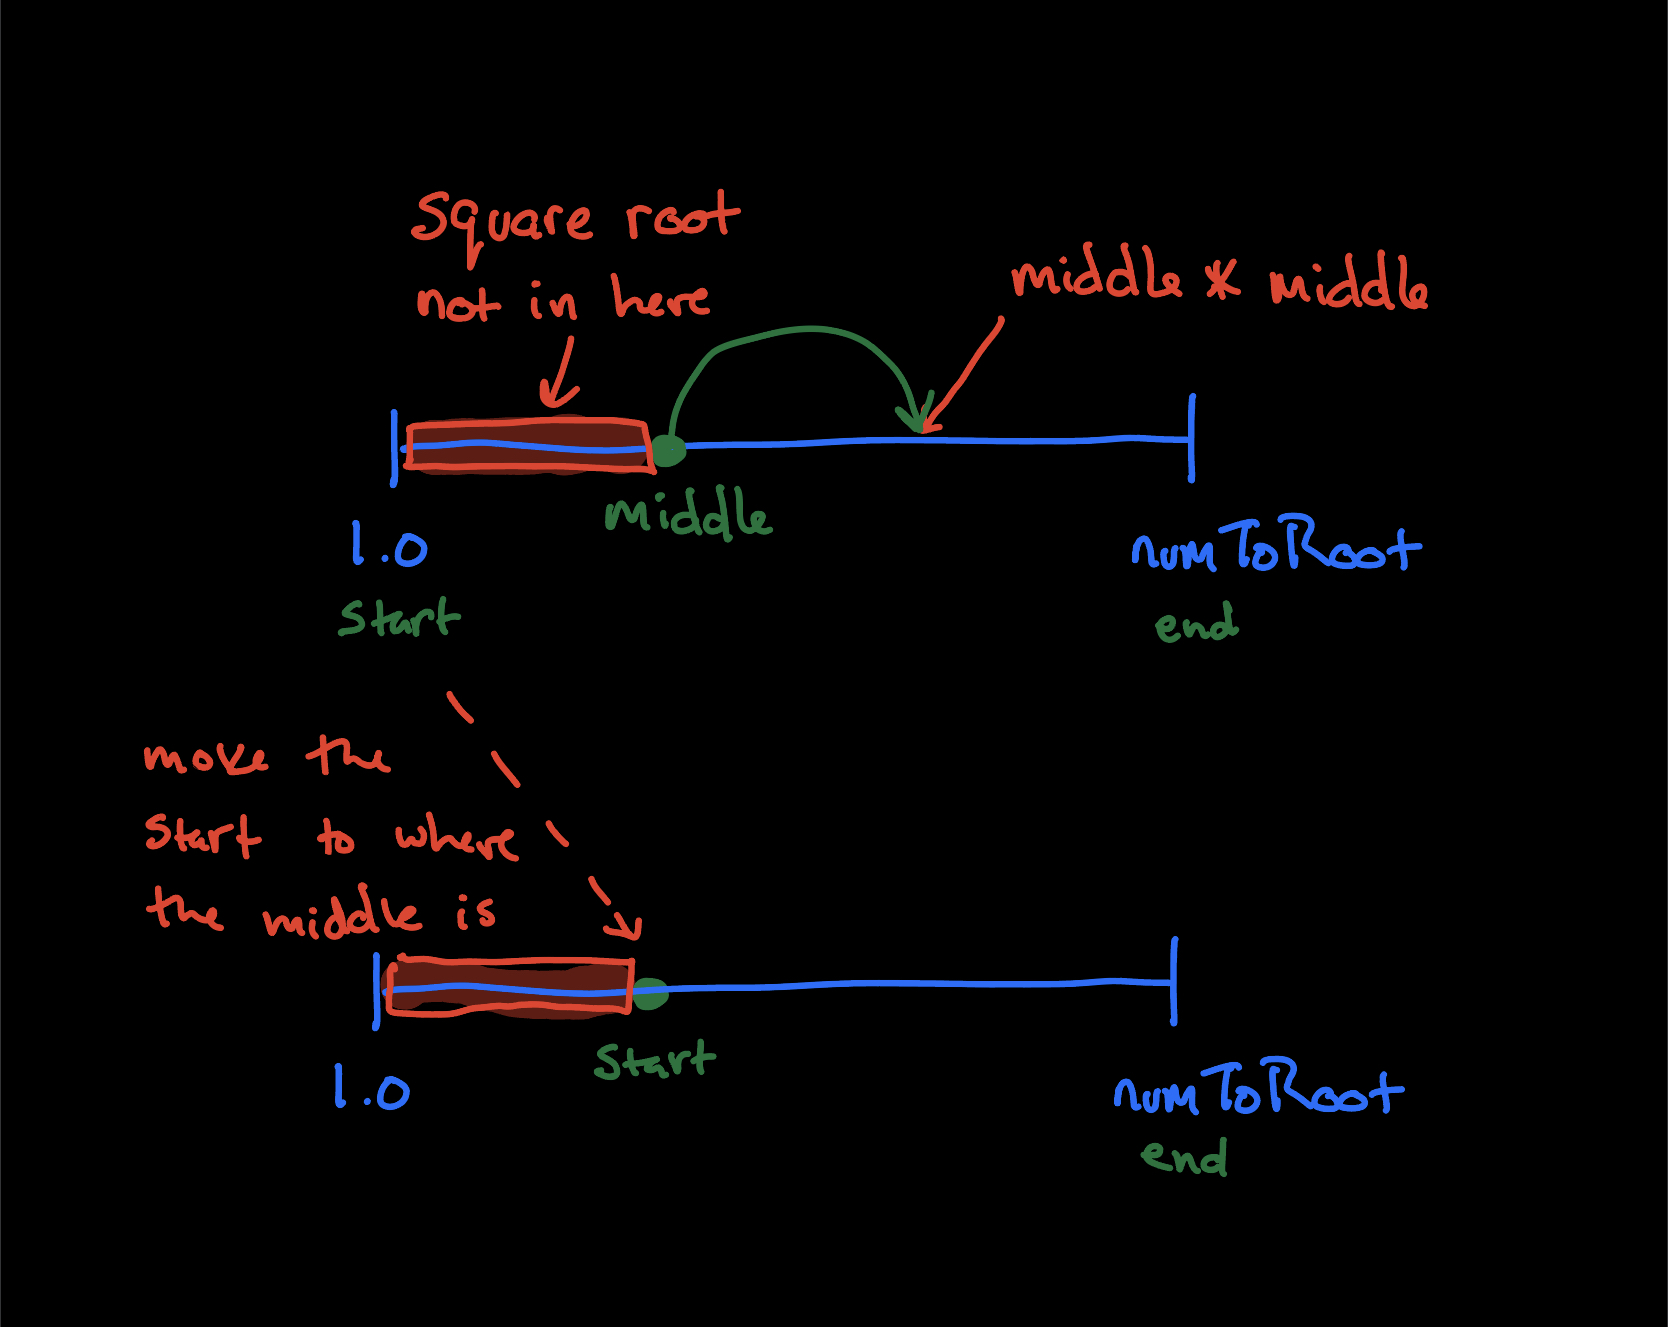 Square root
not in here
middle * middle
middle
1.0
numToRoot
start
end
move the
start to where
the middle is
start
1.0
numToRoot
end